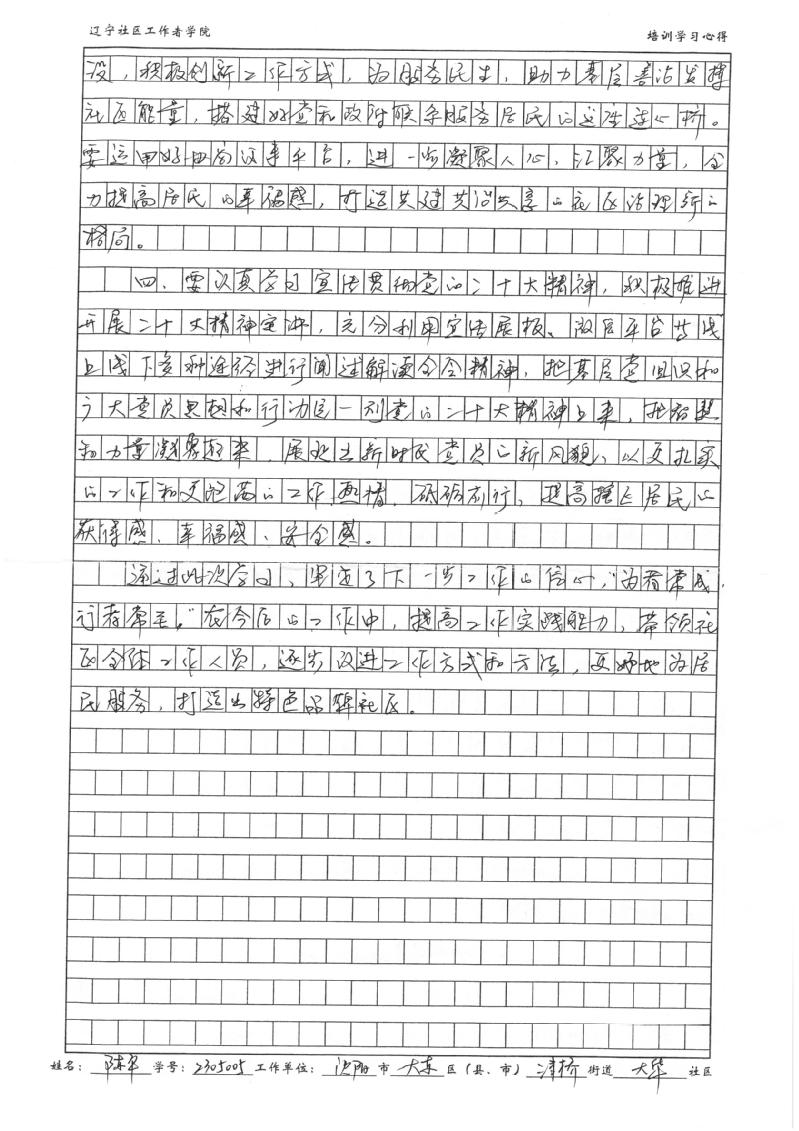 辽宁社区工作者学院 培训学习心得
设，积极创新工作方式，为服务民生，助力基层善治发挥
社区能量，搭建好党和政府联系服务居民的这座连心桥。
要运用好协商议事平台，进一步凝聚人心，汇聚力量，全
力提高居民的幸福感，打造共建共治共享的社区治理新的
格局。
四、要认真学习宣传贯彻党的二十大精神，积极推进
开展二十大精神宣讲，充分利用宣传展板、政区平台等线
上线下多种途径进行阐述解读全会精神，把基层党组织和
广大党员思想和行动统一到党的二十大精神上来，把智慧
和力量凝聚起来，展现出新时代党员的新风貌，以更扎实
的工作和更饱满的工作热情，砥砺前行，提高辖区居民的
获得感、幸福感、安全感。
通过此次学习，坚定了下一步工作的信心，“为者常成，
行者常至。”在今后的工作中，提高工作实践能力，带领社
区全体工作人员，逐步改进工作方式和方法，更好地为居
民服务，打造出特色品牌社区。
姓名：陈军 学号：2305005 工作单位：沈阳市大东区（县、市）津桥街道大华社区